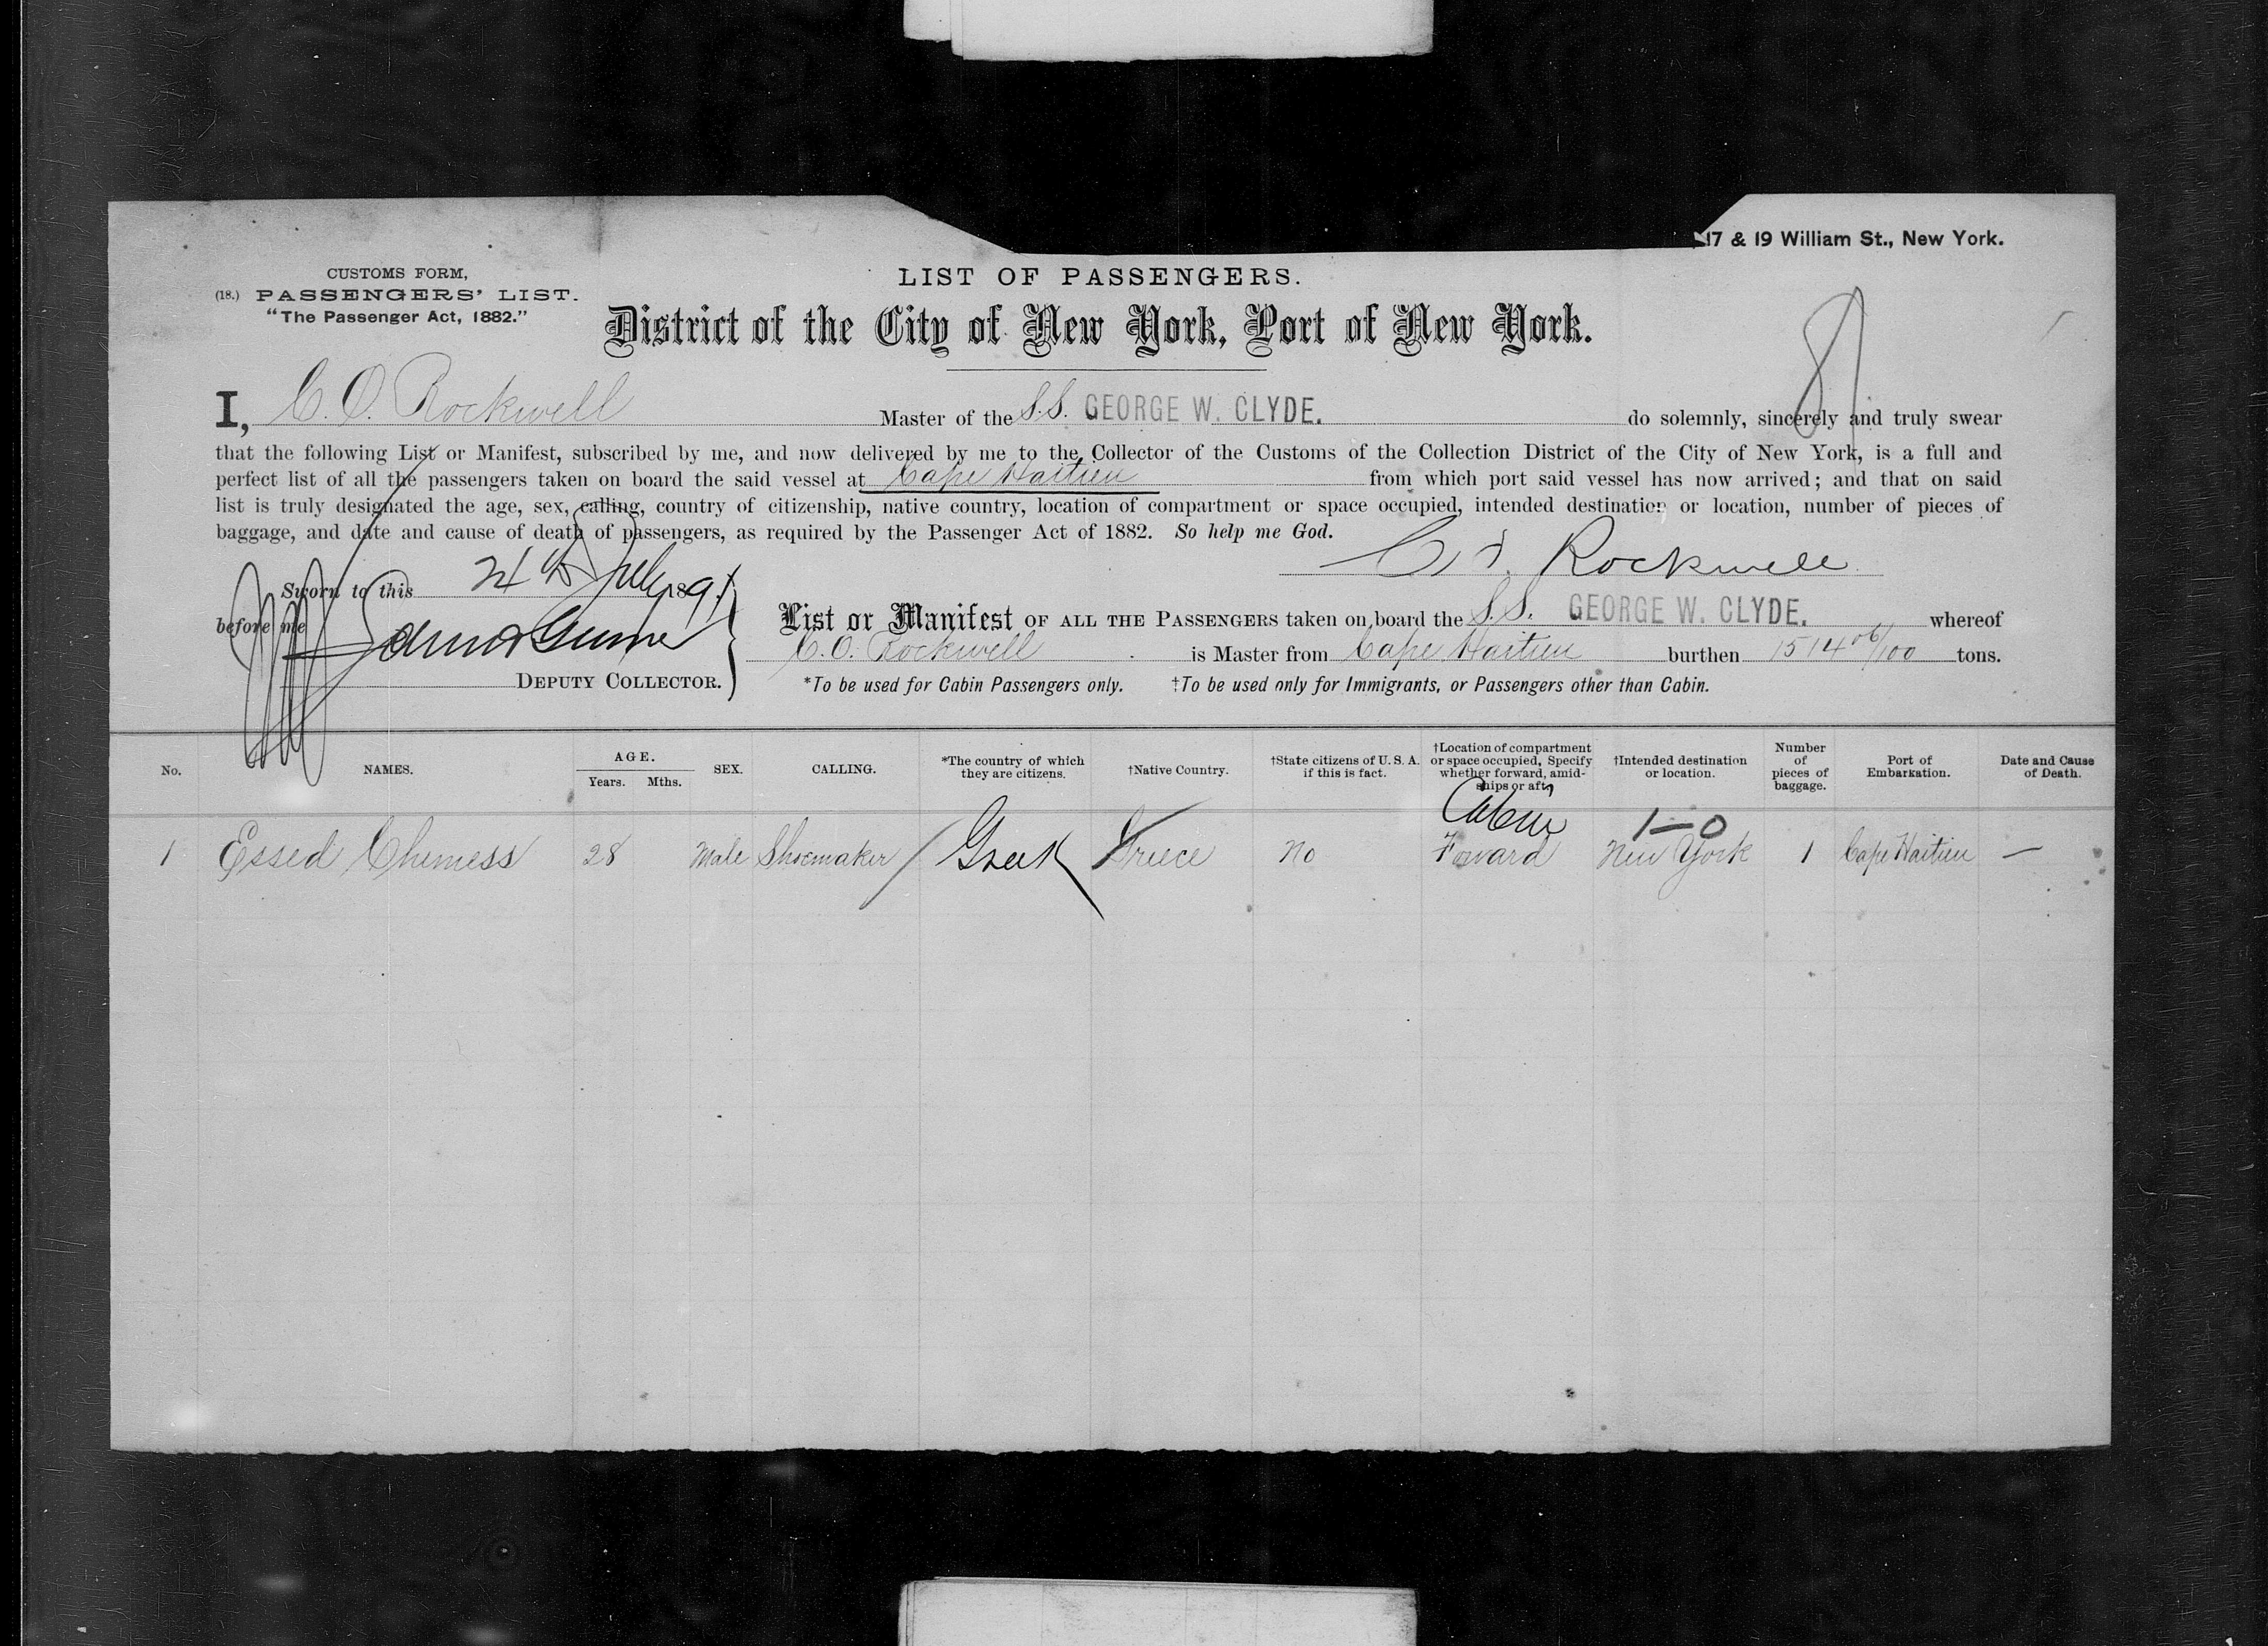 17 & 19 William St., New York.
CUSTOMS FORM,
(18.) PASSENGERS' LIST.
"The Passenger Act, 1882."
LIST OF PASSENGERS.
District of the City of New York, Port of New York.
I, C. O. Rockwell Master of the S.S. GEORGE W. CLYDE. do solemnly, sincerely and truly swear
that the following List or Manifest, subscribed by me, and now delivered by me to the Collector of the Customs of the Collection District of the City of New York, is a full and
perfect list of all the passengers taken on board the said vessel at Cape Haitien from which port said vessel has now arrived; and that on said
list is truly designated the age, sex, calling, country of citizenship, native country, location of compartment or space occupied, intended destination or location, number of pieces of
baggage, and date and cause of death of passengers, as required by the Passenger Act of 1882. So help me God.
C. O. Rockwell
Sworn to this 24th July 1891
before me
DEPUTY COLLECTOR.
List or Manifest OF ALL THE PASSENGERS taken on board the S.S. GEORGE W. CLYDE. whereof
C. O. Rockwell is Master from Cape Haitien burthen 1514 06/100 tons.
*To be used for Cabin Passengers only. †To be used only for Immigrants, or Passengers other than Cabin.
No. NAMES. AGE. Years. Mths. SEX. CALLING. *The country of which they are citizens. †Native Country. †State citizens of U. S. A. if this is fact. †Location of compartment or space occupied, Specify whether forward, amidships or aft. †Intended destination or location. Number of pieces of baggage. Port of Embarkation. Date and Cause of Death.
Cabin 1-0
1 Essed Chemess 28 Male Shoemaker Greek Greece No Forward New York 1 Cape Haitien —